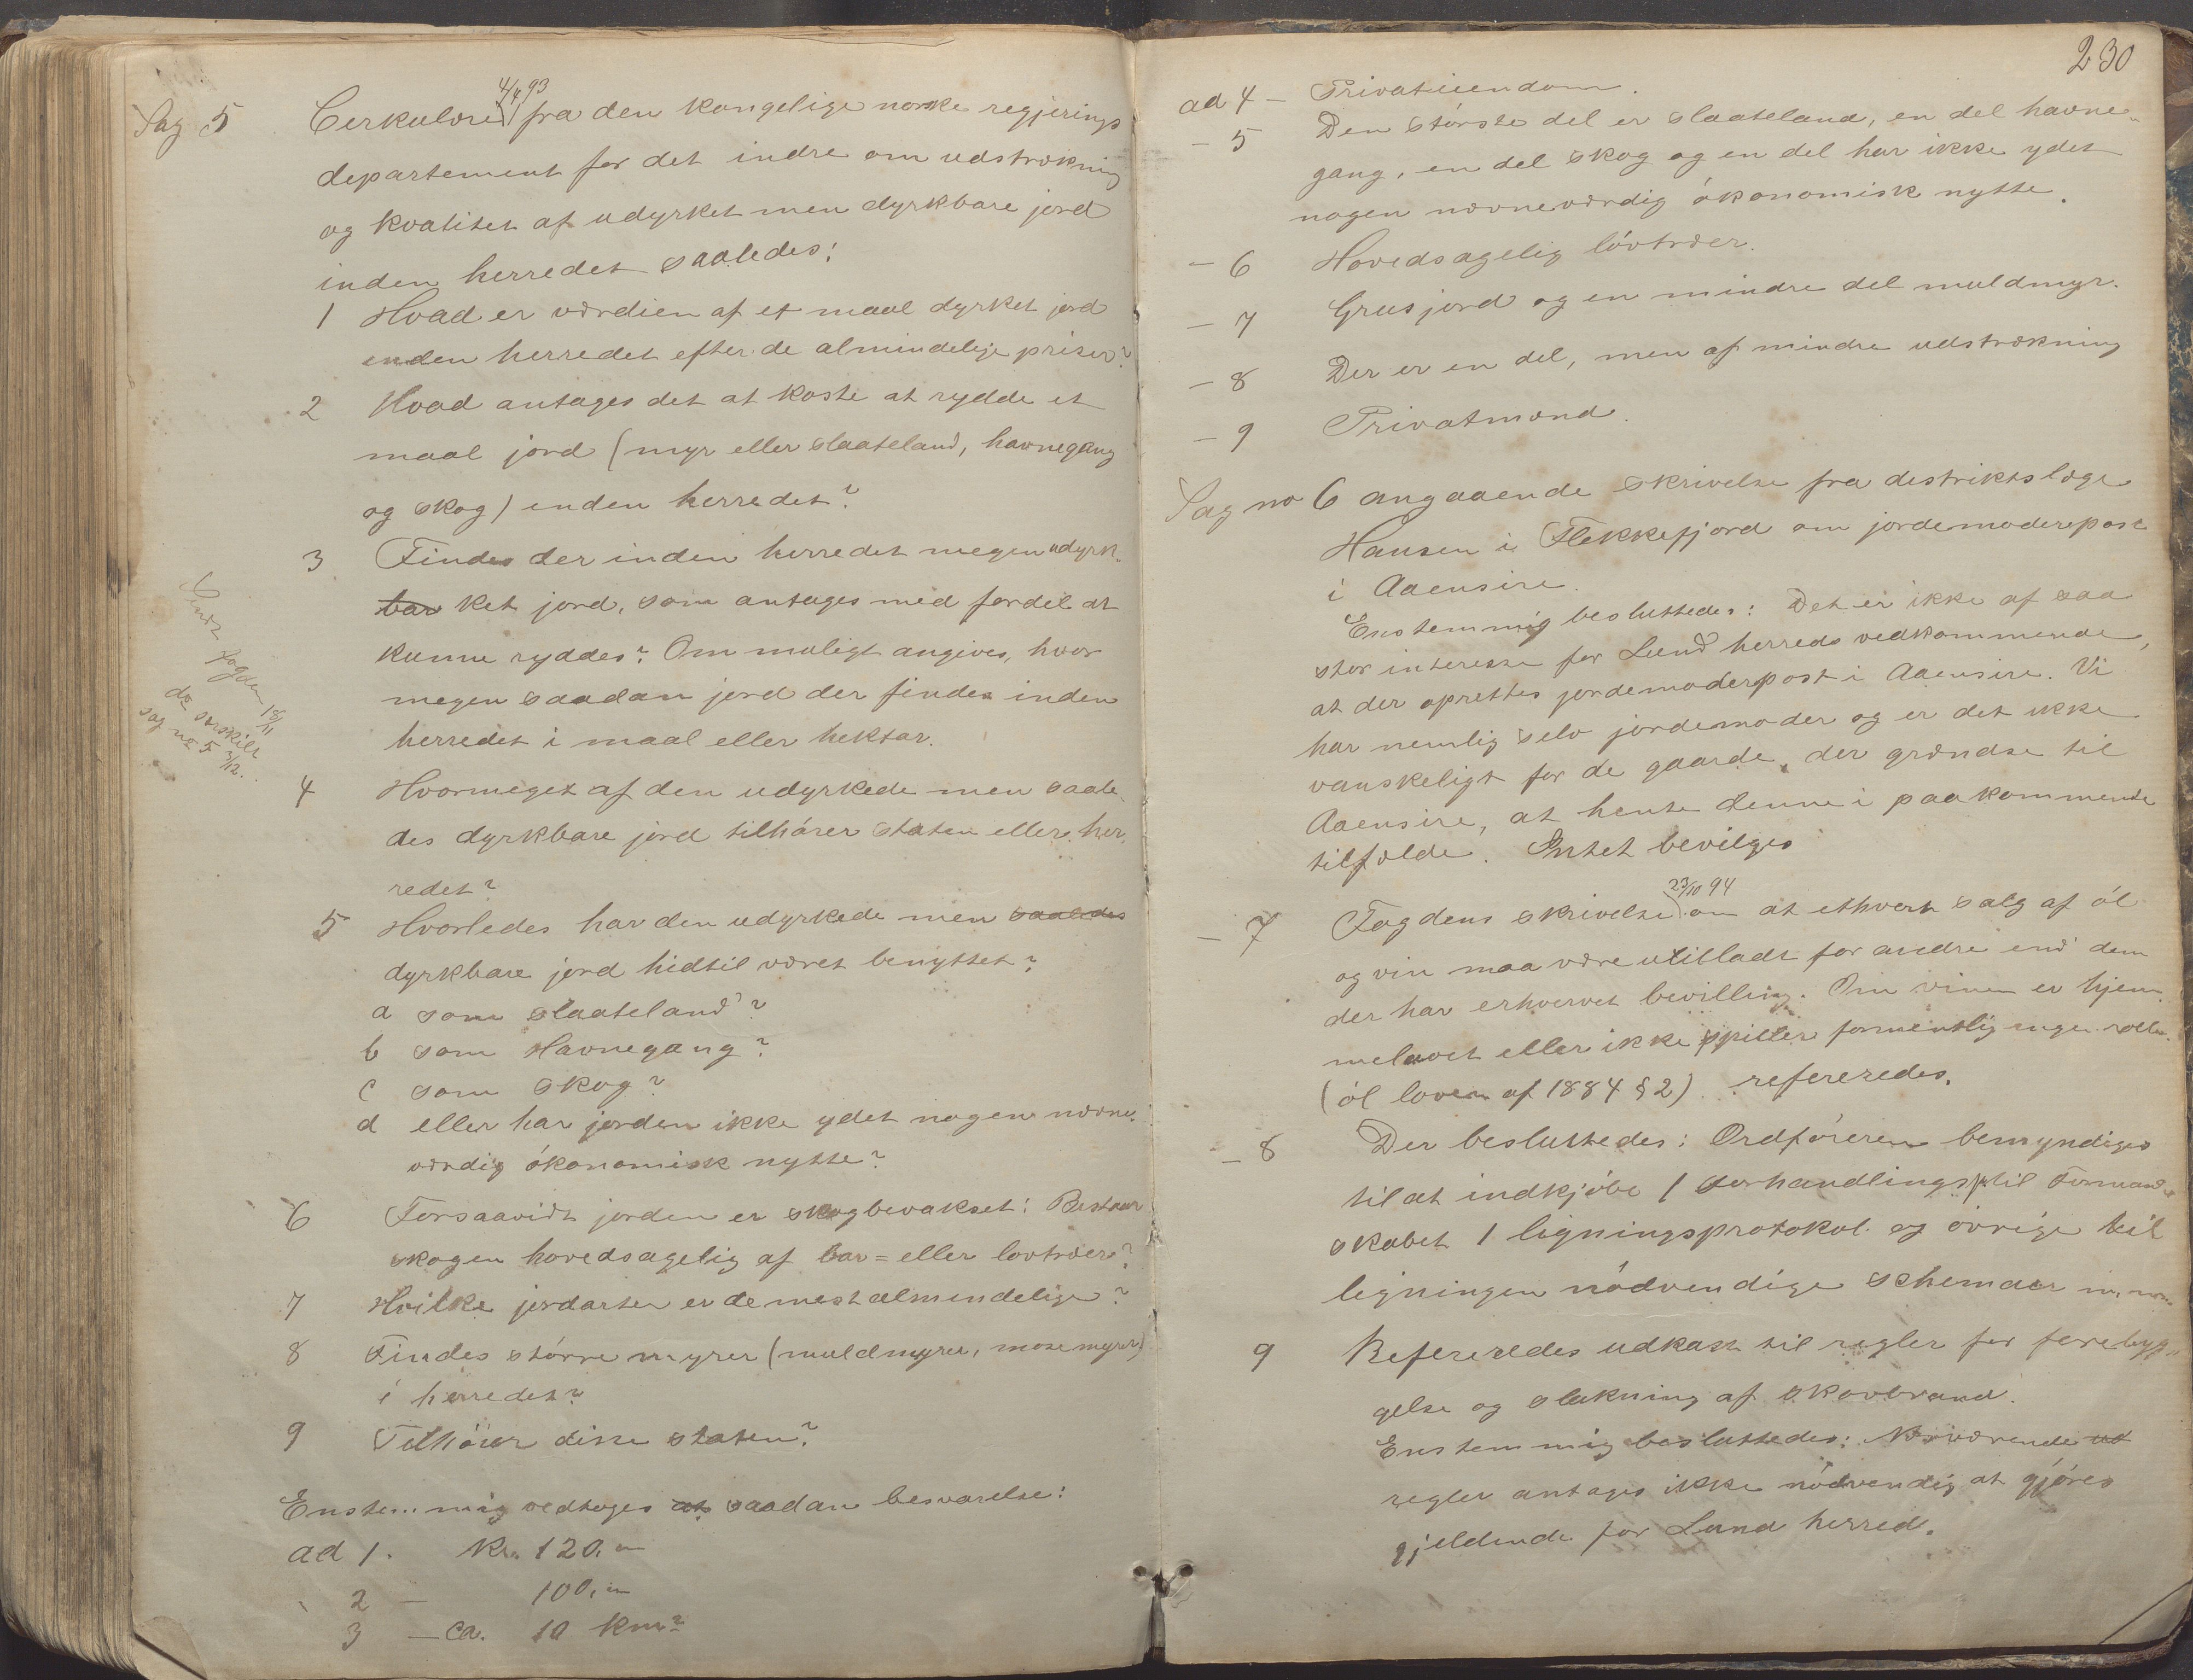 Sag 5 Cerkulære 4/4 93 fra den kongelige norske regjerings
departement for det indre om udstrækning
og kvalitet af udyrket men dyrkbare jord
inden herredet saaledes:
1 Hvad er værdien af et maal dyrket jord
enden herredet efter de almindelige priser?
2 Hvad antages det at koste at rydde et
maal jord (myr eller slaateland, havnegang
og skog) enden herredet?
3 Findes der inden herredet megen udyrk-
bar ket jord, som antages med fordel at
kunne ryddes? Om muligt angives, hvor
megen saadan jord der findes inden
herredet i maal eller hektar.
Sendt fogden 18/11
do særskilt
sag no 5 3/12.
4 Hvormeget af den udyrkede men saale-
des dyrkbare jord tilhører staten eller her-
redet?
5 Hvorledes har den udyrkede men saaledes
dyrkbare jord hidtil været benyttet?
a som slaateland?
b som Havnegang?
c som skog?
d eller har jorden ikke ydet nogen nævne-
værdig økonomisk nytte?
6 Forsaavidt jorden er skogbevokset: Bestaar
skogen hovedsagelig af bar= eller løvtræer?
7 Hvilke jordarter er de mest almindelige?
8 Findes større myrer (muldmyrer, mosemyrer)
i herredet?
9 Tilhører disse staten?
Enstemmig vedtoges at saadan besvarelse:
ad 1. Kr. 120.-
2 — 100.-
3 — Ca. 10 km²
230
ad 4 — Privateiendom.
— 5 Den største del er slaateland, en del havne-
gang, en del skog og en del har ikke ydet
nogen nævneværdig økonomisk nytte.
— 6 Hovedsagelig løvtræer.
— 7 Grusjord og en mindre del muldmyr.
— 8 Der er en del, men af mindre udstrækning
— 9 Privatmænd.
Sag no 6 angaaende skrivelse fra destriktslæge
Hansen i Flekkefjord om jordemoderpost
i Aaensire.
Enstemmig besluttedes: Det er ikke af saa
stor interesse for Lund herreds vedkommende,
at der oprettes jordemoderpost i Aaensire. Vi
har nemlig selv jordemoder og er det ikke
vanskeligt for de gaarde, der grændse til
Aaensire, at hente denne i paakommende
tilfælde. Intet bevilges
— 7 Fogdens skrivelse 23/10 94 om at ethvert salg af øl
og vin maa være utilladt for andre end dem
der har erhvervet bevilling. Om vinen er hjem-
melavet eller ikke spiller formentlig ingen rolle.
(øl loven af 1884 § 2) refereredes.
— 8 Der besluttedes: Ordføreren bemyndiges
til at indkjøbe 1 forhandlingsp. til Formand-
skabet 1 ligningsprotokol og øvrige til
ligningen nødvendige schemaer m. m.
9 Refereredes udkast til regler for forebyg-
gelse og slukning af skovbrand.
Enstemmig besluttedes: Nærværende ud
regler antages ikke nødvendig at gjøres
gjeldende for Lund herred.